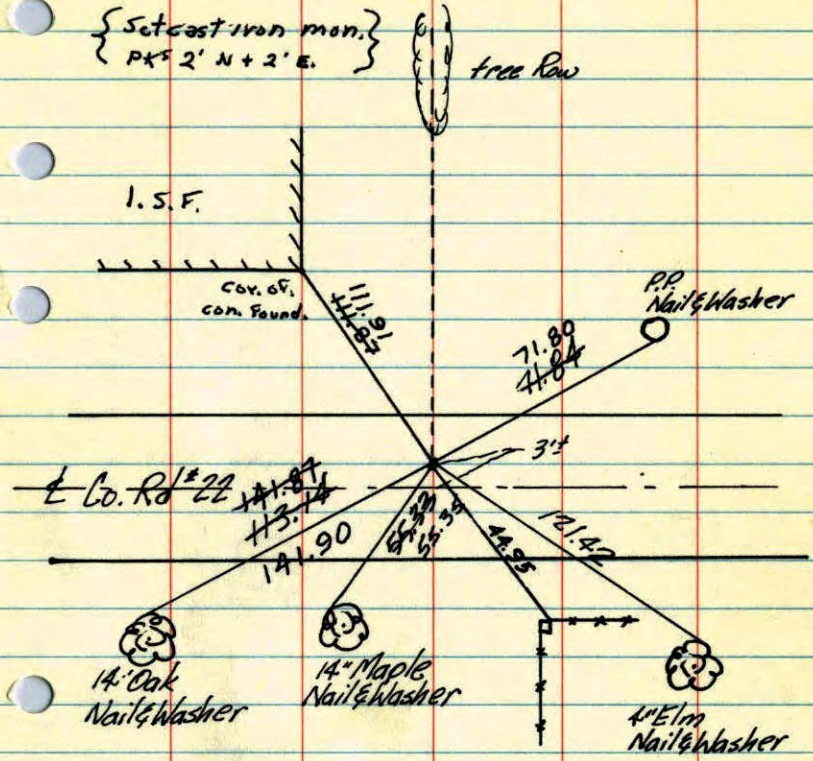 { Set cast iron mon. }
{ PKs 2' N + 2' E. }
tree Row
I.S.F.
cor. of.
con. Found.
111.91
111.87
P.P.
Nail & Washer
71.80
71.84
3'±
℄ Co. Rd #22
141.87
113.14
141.90
55.33
55.35
44.95
121.42
14" Oak
Nail & Washer
14" Maple
Nail & Washer
4" Elm
Nail & Washer